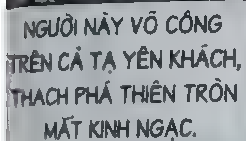 NGUỜI NÀY VÕ CÔNG
TRÊN CẢ TẠ YÊN KHÁCH,
THẠCH PHÁ THIÊN TRÒN
MẮT KINH NGẠC.